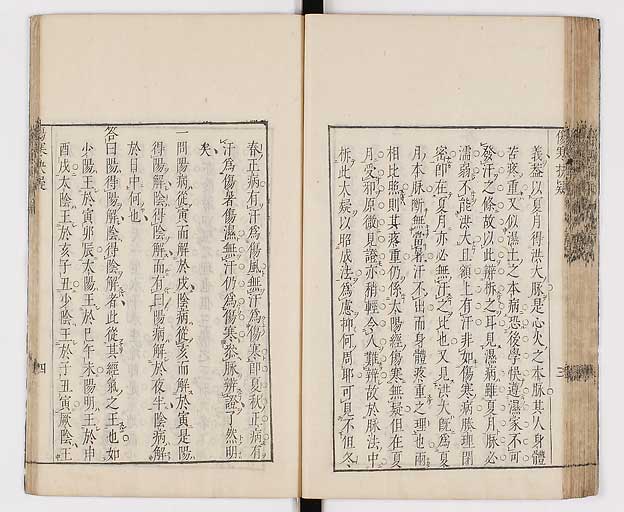 義蓋以夏月得洪大脉是心火之本脉其人身體
苦疼重又似濕土之本病恐後學悞遵濕家不可
發汗之條故以此辯析之耳見濕病雖夏月脉必
濡弱不能洪大且額上有汗非如傷寒病腠理閉
密即在夏月亦必無汗之比也又見洪大旣爲夏
月本脉斷無當暑汗不出而身體疼重之理也兩
相比照則其疼重仍係太陽經傷寒無疑但在夏
月受邪原微見證亦稍輕令人難辨故於脉法中
析此大疑以昭成法爲慮抑何周耶可見不但冬
春正病有汗爲傷風無汗爲傷寒即夏秋正病有
汗爲傷暑傷濕無汗仍爲傷寒叅脉辨證了然明
矣
一問陽病從寅而解於戌陰病從亥而解於寅是陽
得陽解陰得陰解而有曰陽病解於夜半陰病解
於日中何也
答曰陽得陽解陰得陰解者此從其經氣之王也如
少陽王於寅卯辰太陽王於巳午未陽明王於申
酉戌太陰王於亥子丑少陰王於子丑寅厥陰王
四